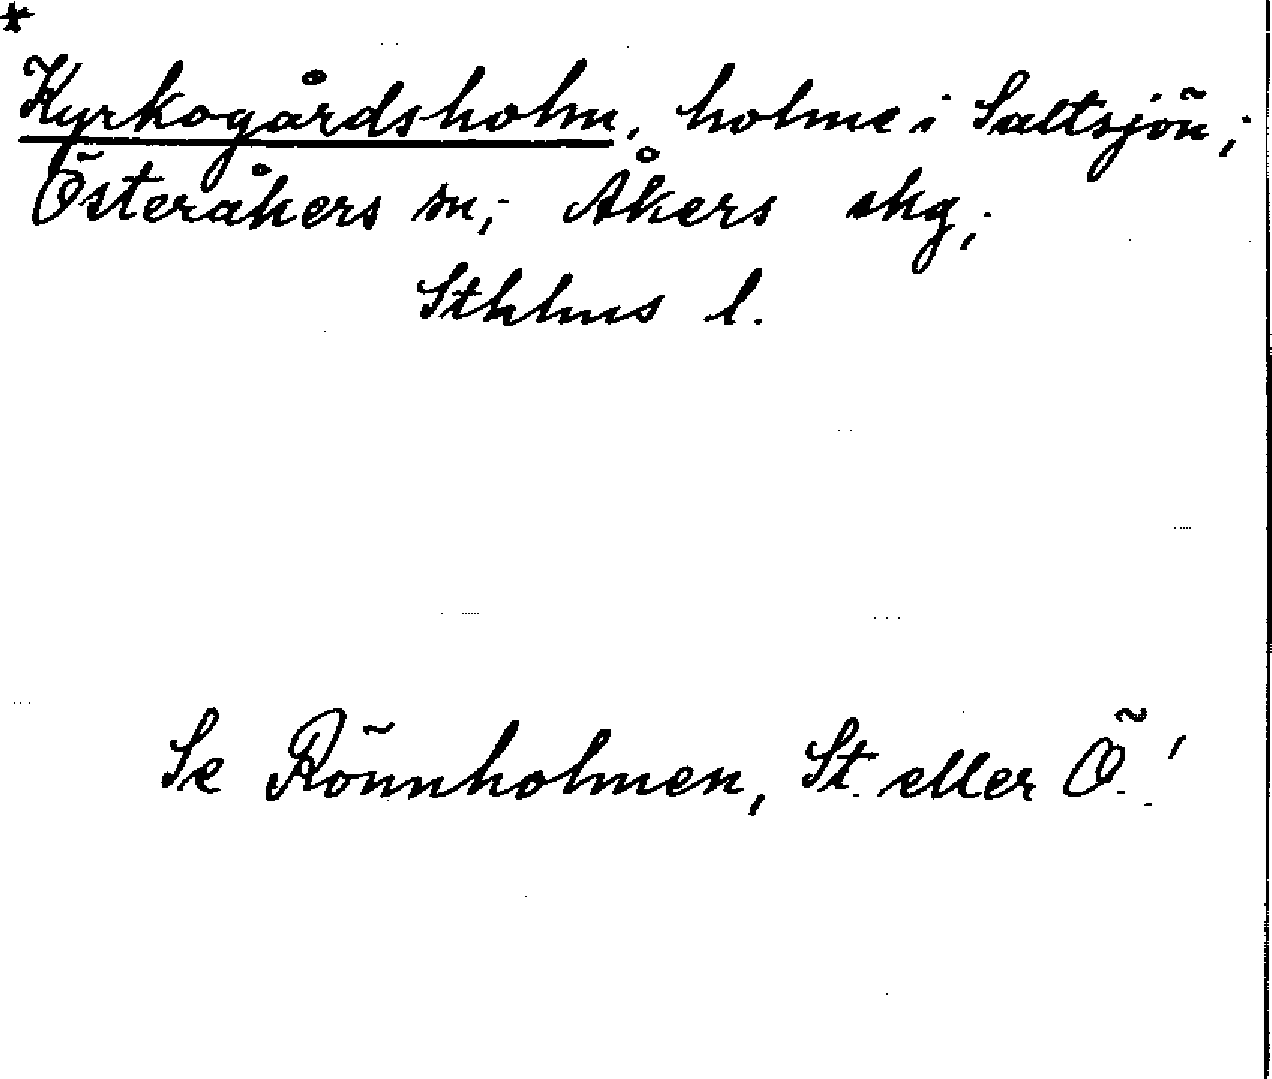 *
Kyrkogårdsholm, holme i Saltsjön;
Österåkers sn; Åkers skg;
Sthlms l.
Se Rönnholmen, St. eller Ö.!